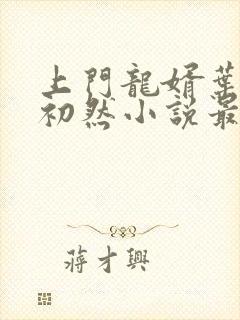 上門龍婿葉
初然小説最
蔣才興